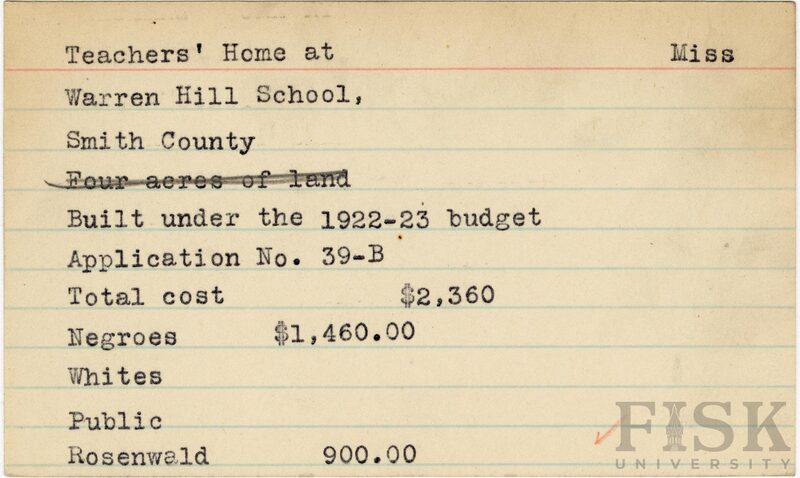 Teachers' Home at Miss
Warren Hill School,
Smith County
Four acres of land
Built under the 1922-23 budget
Application No. 39-B
Total cost $2,360
Negroes $1,460.00
Whites
Public
Rosenwald 900.00
FISK
UNIVERSITY